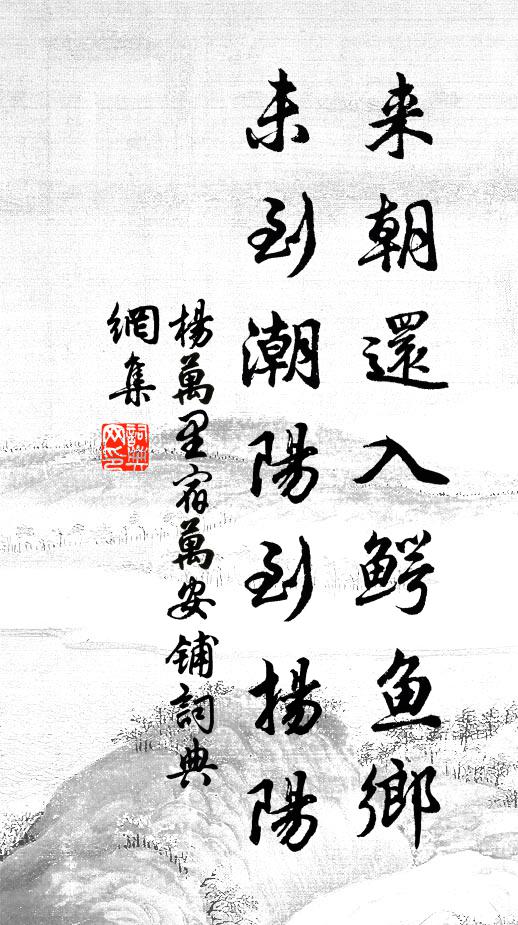 来朝還入鳄鱼鄉
未到潮陽到揚陽
楊萬里宿萬安铺詞典
網集
詞典網印